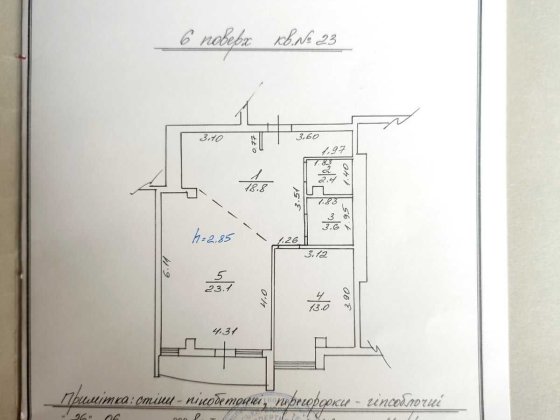 6 поверх кв.№ 23
3.10 0.77 3.60
1.97
1 18.8
1.83
2 2.4 1.40
3.51
1.83
3 3.6 1.95
h=2.85
1.26
3.12
6.11
5 23.1
4.0
4 13.0
3.90
4.31
Примітка: стіни - пінобетонні, перегородки - гіпсоблочні